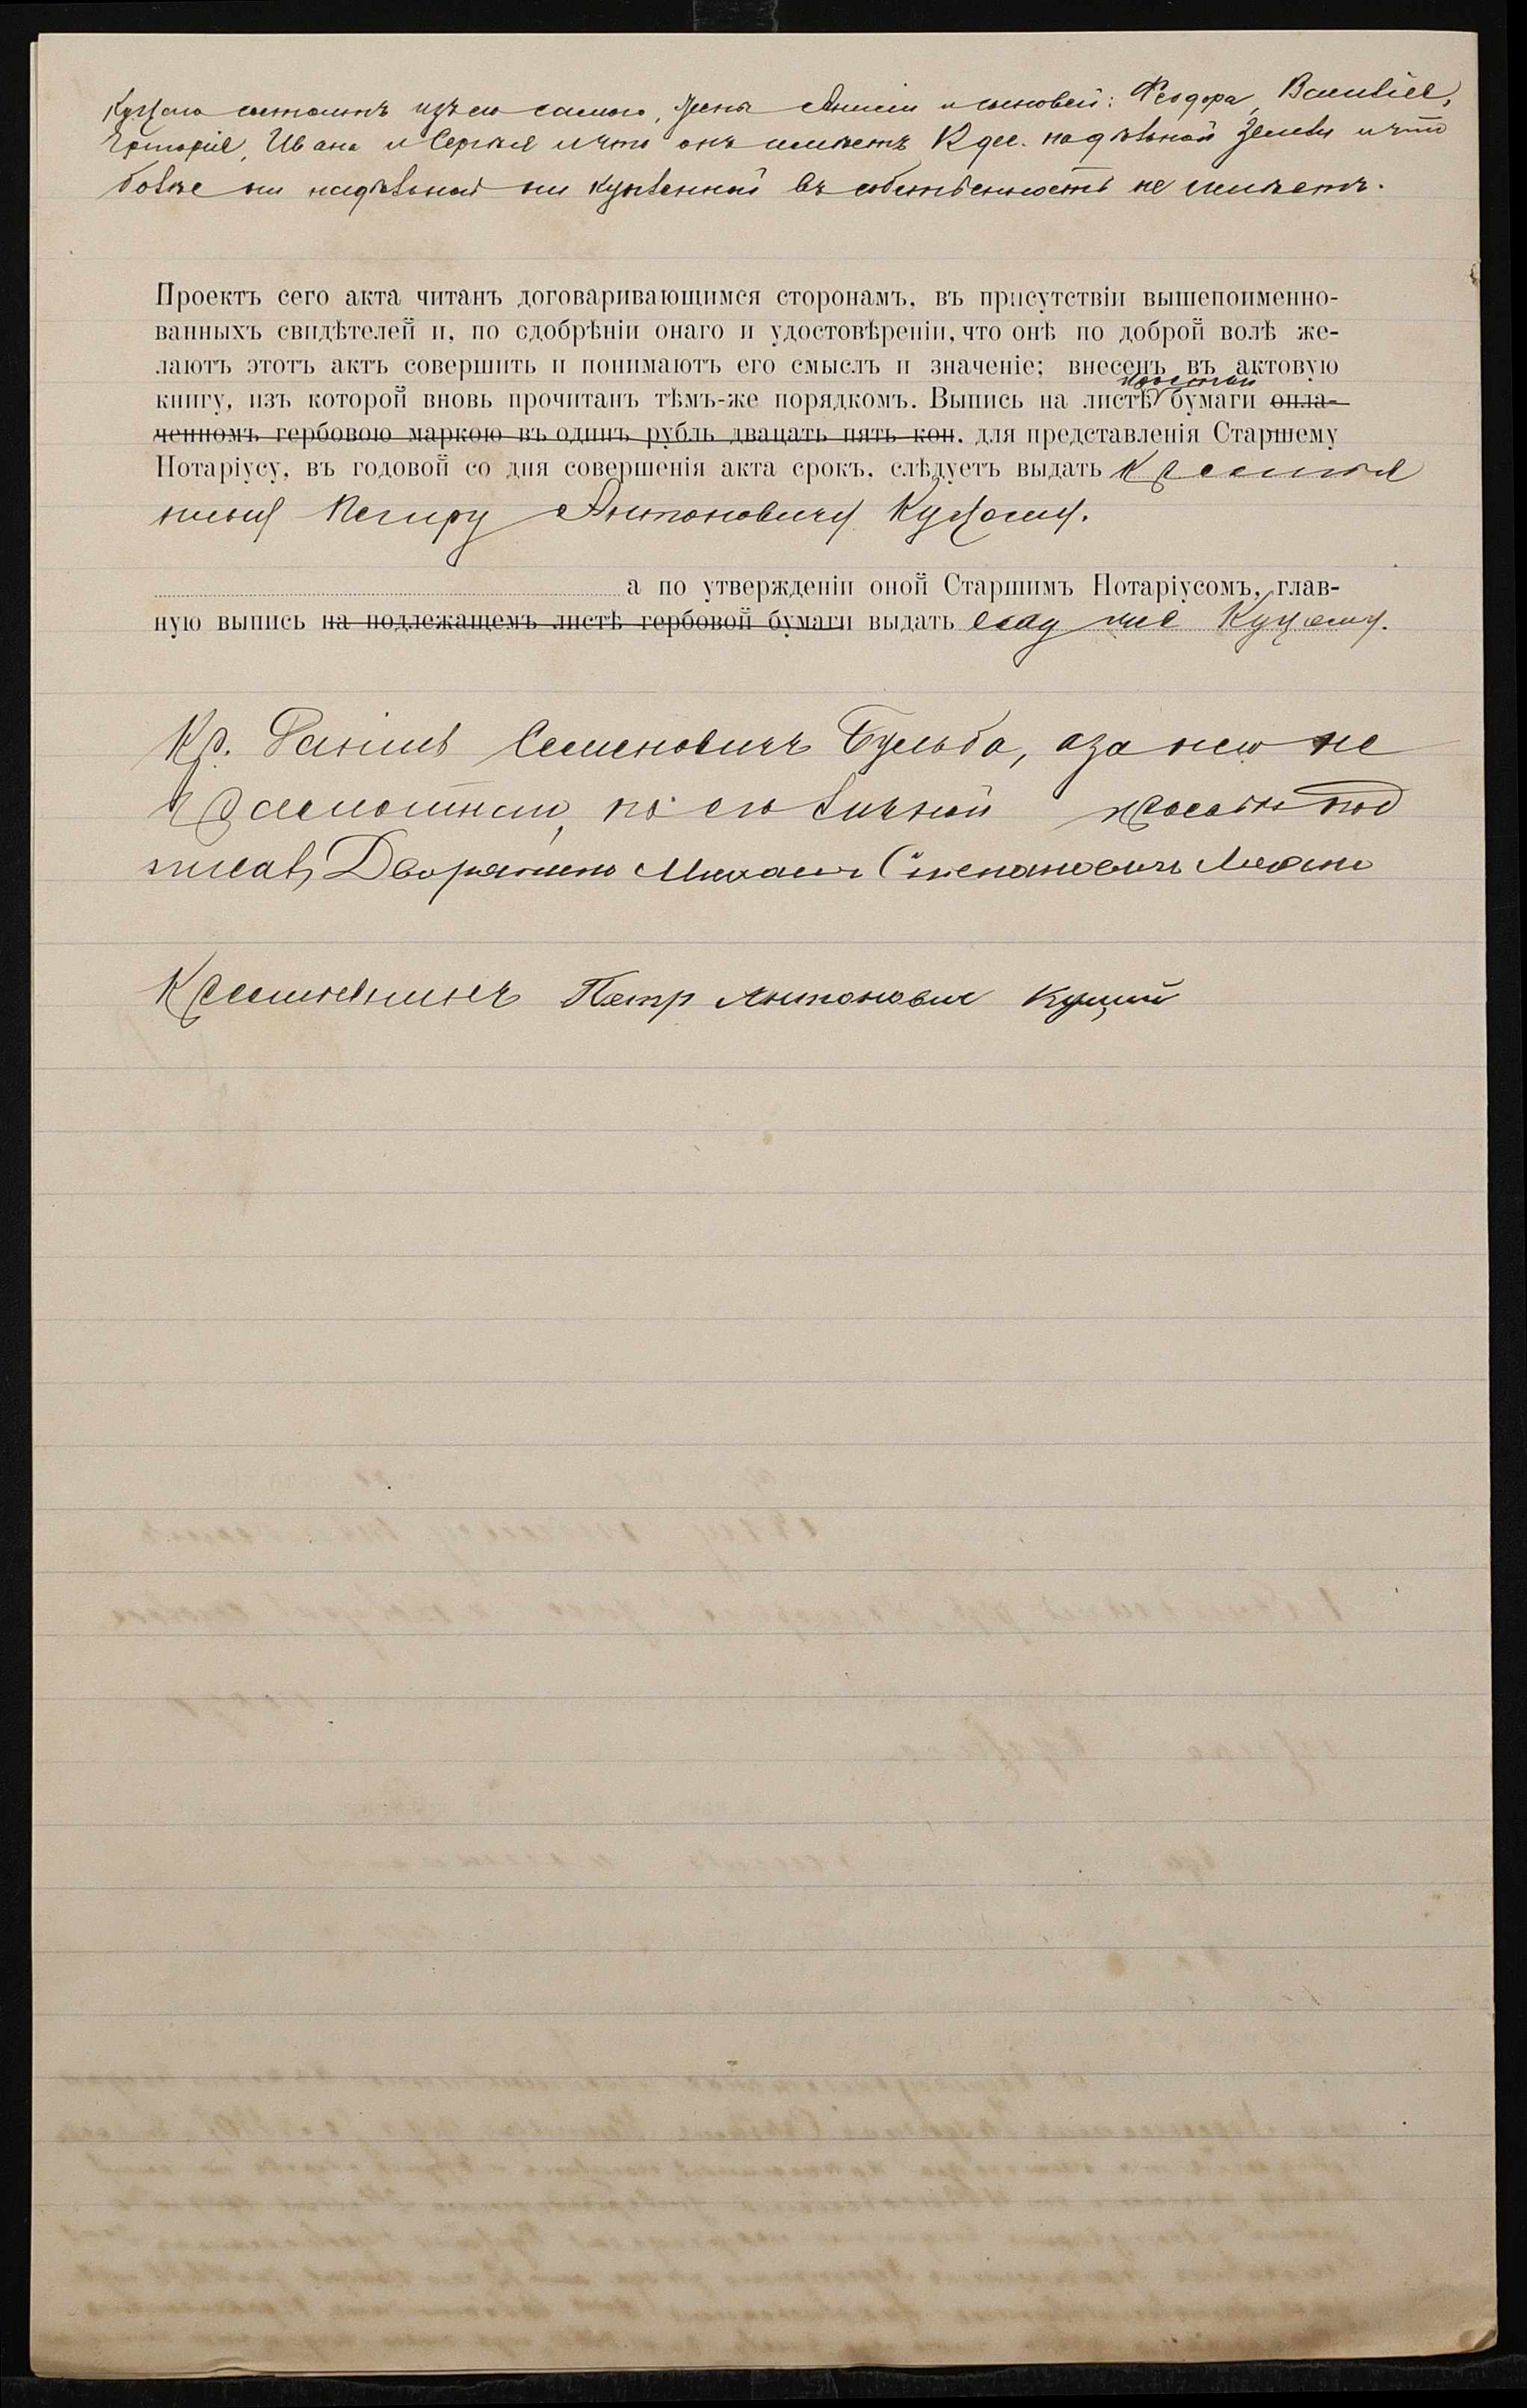 Куцаго состоитъ изъ его самого, жены Анисіи и сыновей: Феодора, Василія,
Григорія, Ивана и Сергѣя и что онъ имѣетъ дес. надѣльной земли и что
болѣе ни надѣльной ни купленной въ собственность не имѣетъ.
Проектъ сего акта читанъ договаривающимся сторонамъ, въ присутствіи вышепоименно-
ванныхъ свидѣтелей и, по одобрѣніи онаго и удостовѣреніи, что онѣ по доброй волѣ же-
лаютъ этотъ актъ совершить и понимаютъ его смыслъ и значеніе; внесенъ въ актовую
простой
книгу, изъ которой вновь прочитанъ тѣмъ-же порядкомъ. Выпись на листѣ бумаги опла-
ченномъ гербовою маркою въ одинъ рубль двацать пять коп. для представленія Старшему
Нотаріусу, въ годовой со дня совершенія акта срокъ, слѣдуетъ выдать крестья
нину Петру Антоновичу Куцому.
а по утвержденіи оной Старшимъ Нотаріусомъ, глав-
ную выпись на подлежащемъ листѣ гербовой бумаги выдать ему же Куцому.
Кр. Даніилъ Семеновичъ Бульба, а за него не
грамотнаго, по его личной просьбѣ под
писалъ Дворянинъ Михаилъ Степановичъ
Крестьянинъ Петр Антонович Куций